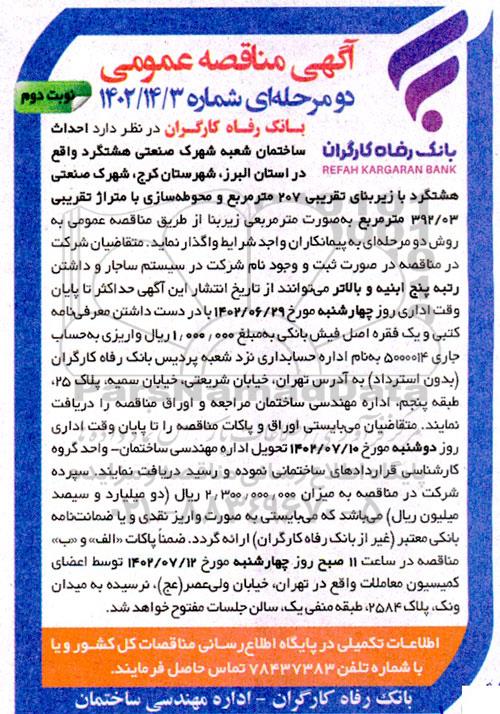 آگهی مناقصه عمومی
دو مرحله‌ای شماره ۱۴۰۲/۱۴/۳
نوبت دوم
بانک رفاه کارگران
REFAH KARGARAN BANK
بانک رفاه کارگران در نظر دارد احداث
ساختمان شعبه شهرک صنعتی هشتگرد واقع
در استان البرز، شهرستان کرج، شهرک صنعتی
هشتگرد با زیربنای تقریبی ۲۰۷ مترمربع و محوطه‌سازی با متراژ تقریبی
۳۹۲/۰۳ مترمربع به‌صورت مترمربعی زیربنا از طریق مناقصه عمومی به
روش دو مرحله‌ای به پیمانکاران واجد شرایط واگذار نماید. متقاضیان شرکت
در مناقصه در صورت ثبت و وجود نام شرکت در سیستم ساجار و داشتن
رتبه پنج ابنیه و بالاتر می‌توانند از تاریخ انتشار این آگهی حداکثر تا پایان
وقت اداری روز چهارشنبه مورخ ۱۴۰۲/۰۶/۲۹ با در دست داشتن معرفی‌نامه
کتبی و یک فقره اصل فیش بانکی به‌مبلغ ۱,۰۰۰,۰۰۰ ریال واریزی به‌حساب
جاری ۵۰۰۰۰۱۴ به‌نام اداره حسابداری نزد شعبه پردیس بانک رفاه کارگران
(بدون استرداد) به آدرس تهران، خیابان شریعتی، خیابان سمیه، پلاک ۲۵،
طبقه پنجم، اداره مهندسی ساختمان مراجعه و اوراق مناقصه را دریافت
نمایند. متقاضیان می‌بایستی اوراق و پاکات مناقصه را تا پایان وقت اداری
روز دوشنبه مورخ ۱۴۰۲/۰۷/۱۰ تحویل اداره مهندسی ساختمان- واحد گروه
کارشناسی قراردادهای ساختمانی نموده و رسید دریافت نمایند. سپرده
شرکت در مناقصه به میزان ۲,۳۰۰,۰۰۰,۰۰۰ ریال (دو میلیارد و سیصد
میلیون ریال) می‌باشد که می‌بایستی به صورت واریز نقدی و یا ضمانت‌نامه
بانکی معتبر (غیر از بانک رفاه کارگران) ارائه گردد. ضمناً پاکات «الف» و «ب»
مناقصه در ساعت ۱۱ صبح روز چهارشنبه مورخ ۱۴۰۲/۰۷/۱۲ توسط اعضای
کمیسیون معاملات واقع در تهران، خیابان ولی‌عصر(عج)، نرسیده به میدان
ونک، پلاک ۲۵۸۴، طبقه منفی یک، سالن جلسات مفتوح خواهد شد.
اطلاعات تکمیلی در پایگاه اطلاع‌رسانی مناقصات کل کشور و یا
با شماره تلفن ۷۸۴۳۷۳۸۳ تماس حاصل فرمایند.
بانک رفاه کارگران - اداره مهندسی ساختمان